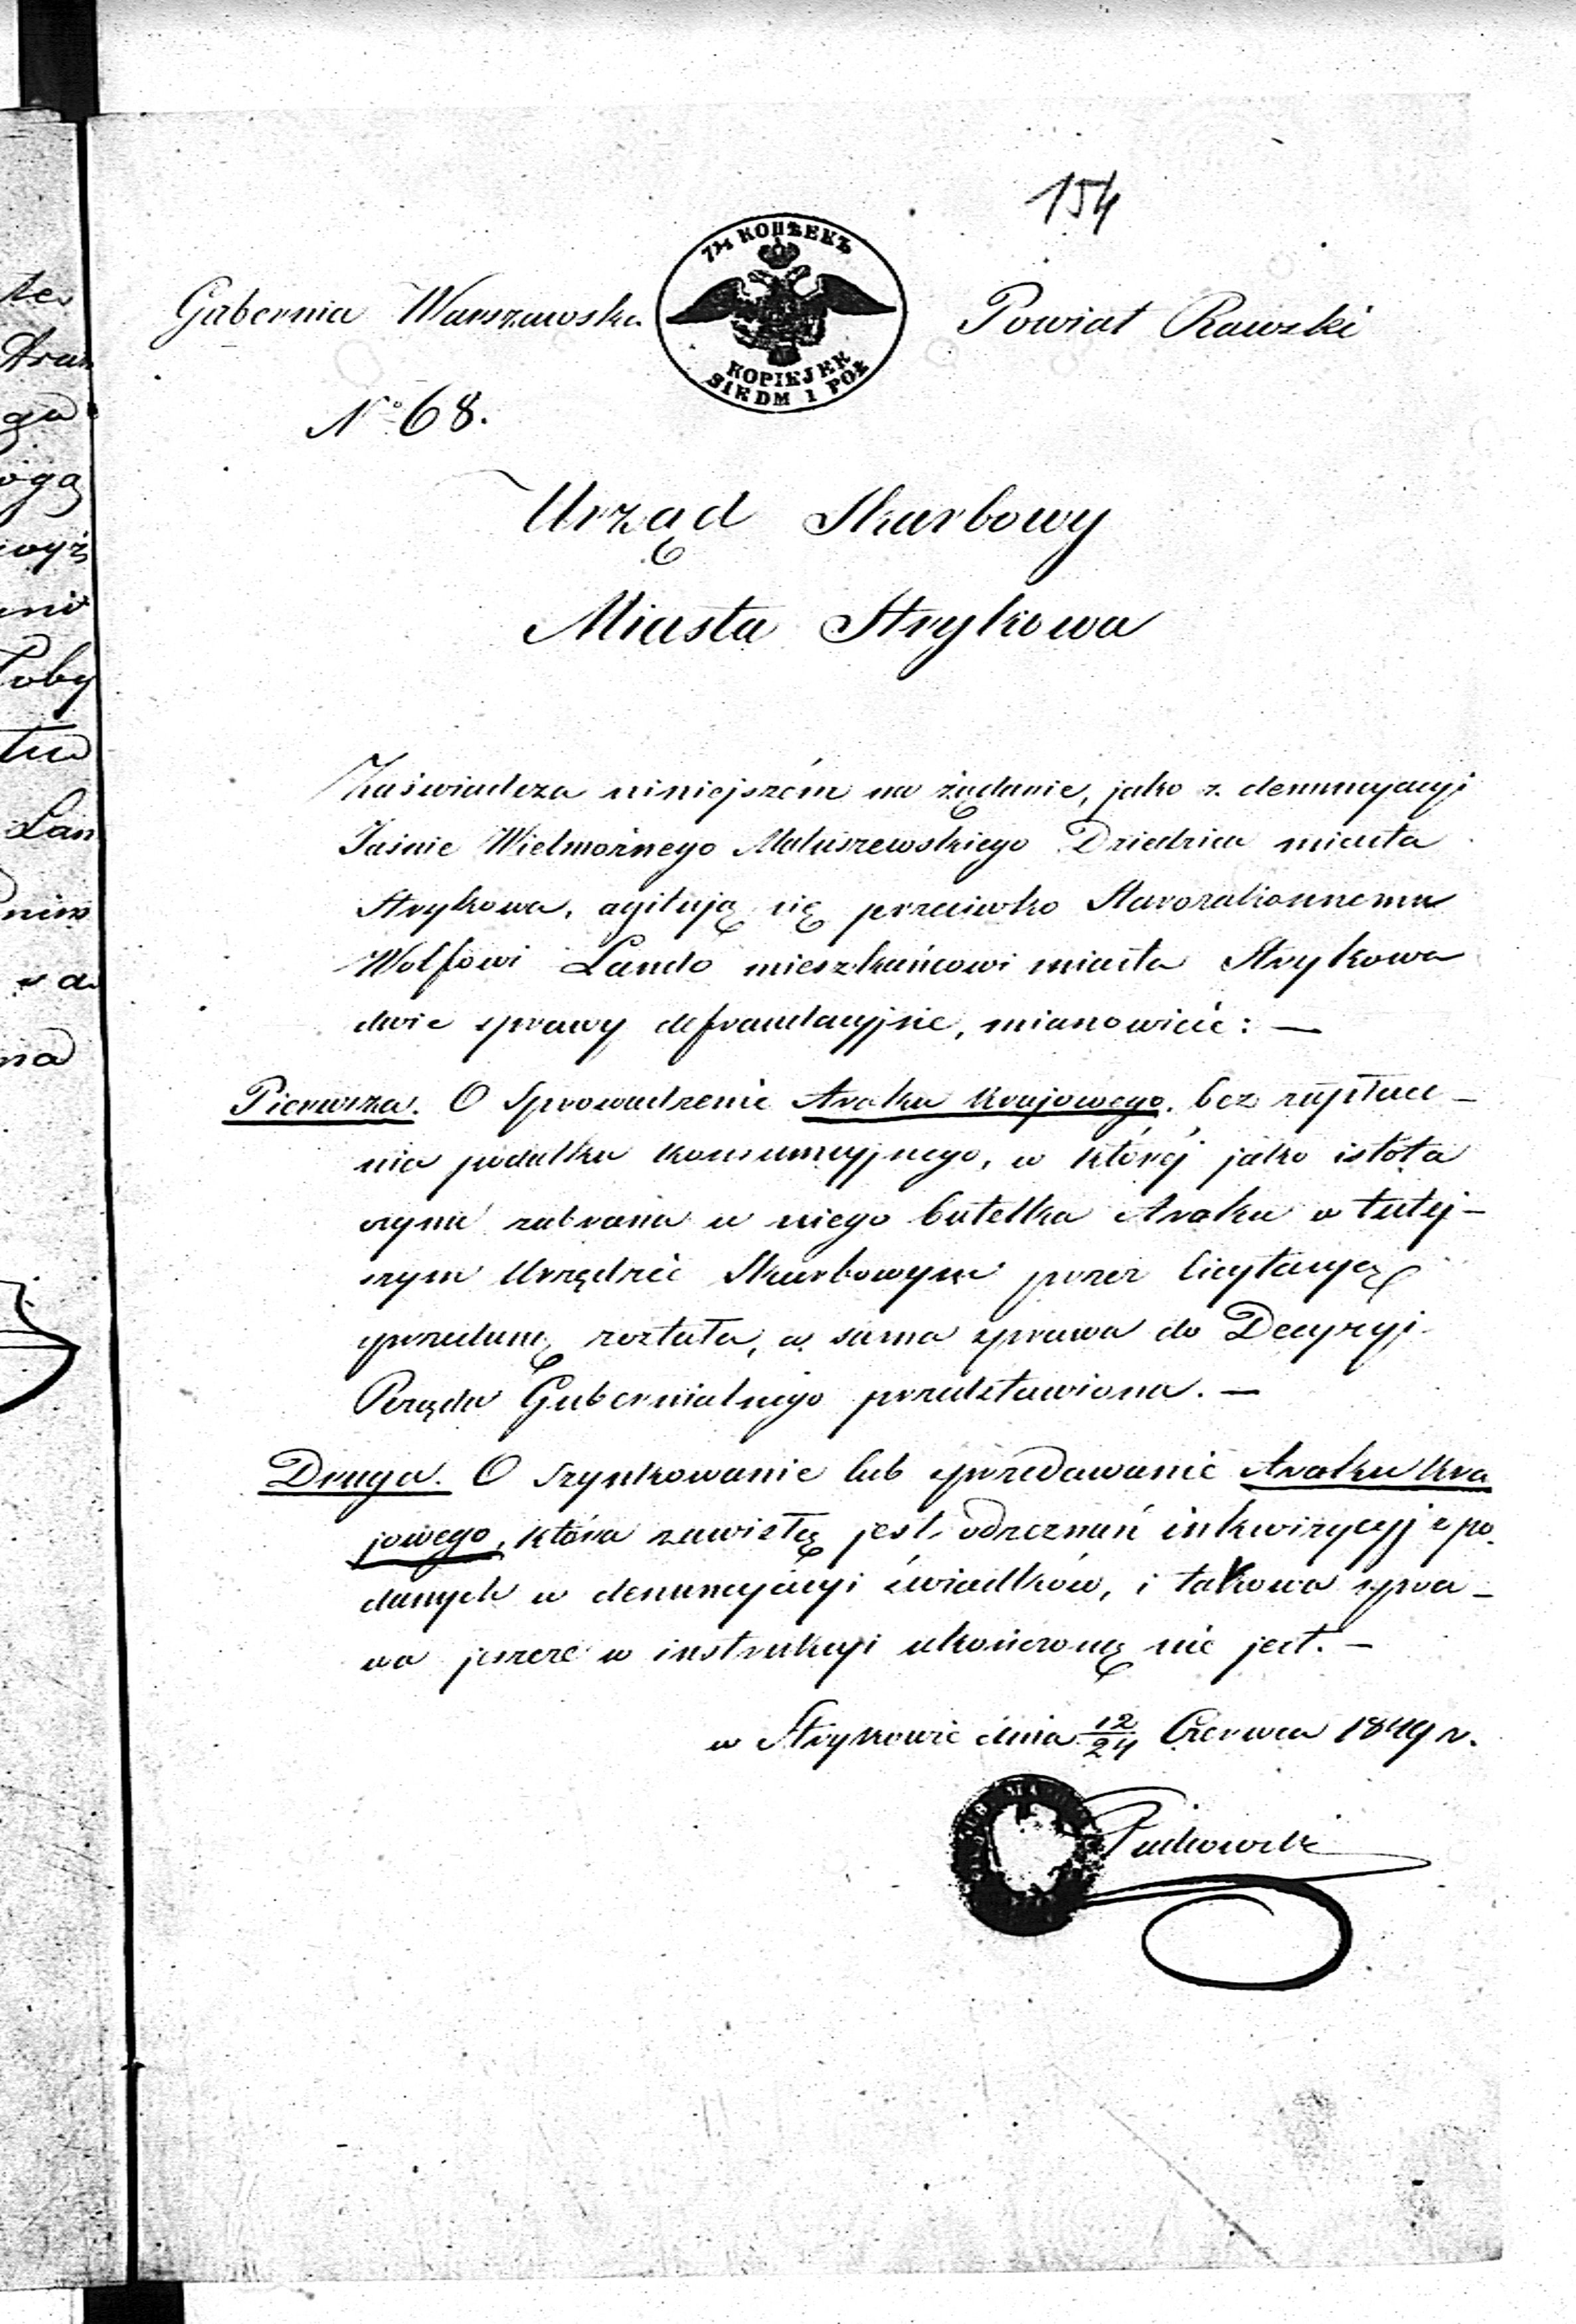 154
7½ КОПѢЕКЪ
KOPIEJEK
SIEDM I PÓŁ
Gubernia Warszawska
Powiat Rawski
N° 68.
Urząd Skarbowy
Miasta Strykowa
Zaświadcza niniejszém na żądanie, jako z denuncyacyi
Jaśnie Wielmożnego Matuszewskiego Dziedzica miasta
Strykowa, agitują się przeciwko Starozakonnemu
Wolfowi Lando mieszkańcowi miasta Strykowa
dwie sprawy defraudacyjne, mianowicie: —
Pierwsza. O Sprowadzenie Araku Krajowego, bez zapłace-
nia podatku konsumcyjnego, w której jako istota
czynu zabrana u niego butelka Araku w tutej-
szym Urzędzie Skarbowym przez licytacyę
sprzedaną została, a sama sprawa do Decyzyi
Rządu Gubernialnego przedstawiona. —
Druga. O Szynkowanie lub sprzedawanie Araku Kra
jowego, która zawisłą jest od zeznań inkwizycyj z po-
danych w denuncyacyi świadków, i takowa spra-
wa jeszcze w instrukcyi ukończoną nie jest. —
w Strykowie dnia 12/24 Czerwca 1849 r.